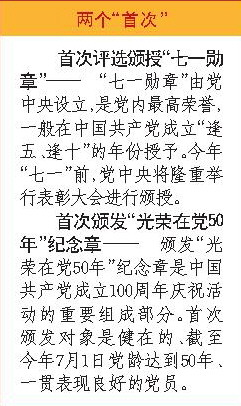 两个“首次”
首次评选颁授“七一勋
章”—— “七一勋章”由党
中央设立，是党内最高荣誉，
一般在中国共产党成立“逢
五、逢十”的年份授予。今年
“七一”前，党中央将隆重举
行表彰大会进行颁授。
首次颁发“光荣在党50
年”纪念章—— 颁发“光
荣在党50年”纪念章是中国
共产党成立100周年庆祝活
动的重要组成部分。首次
颁发对象是健在的、截至
今年7月1日党龄达到50年、
一贯表现良好的党员。